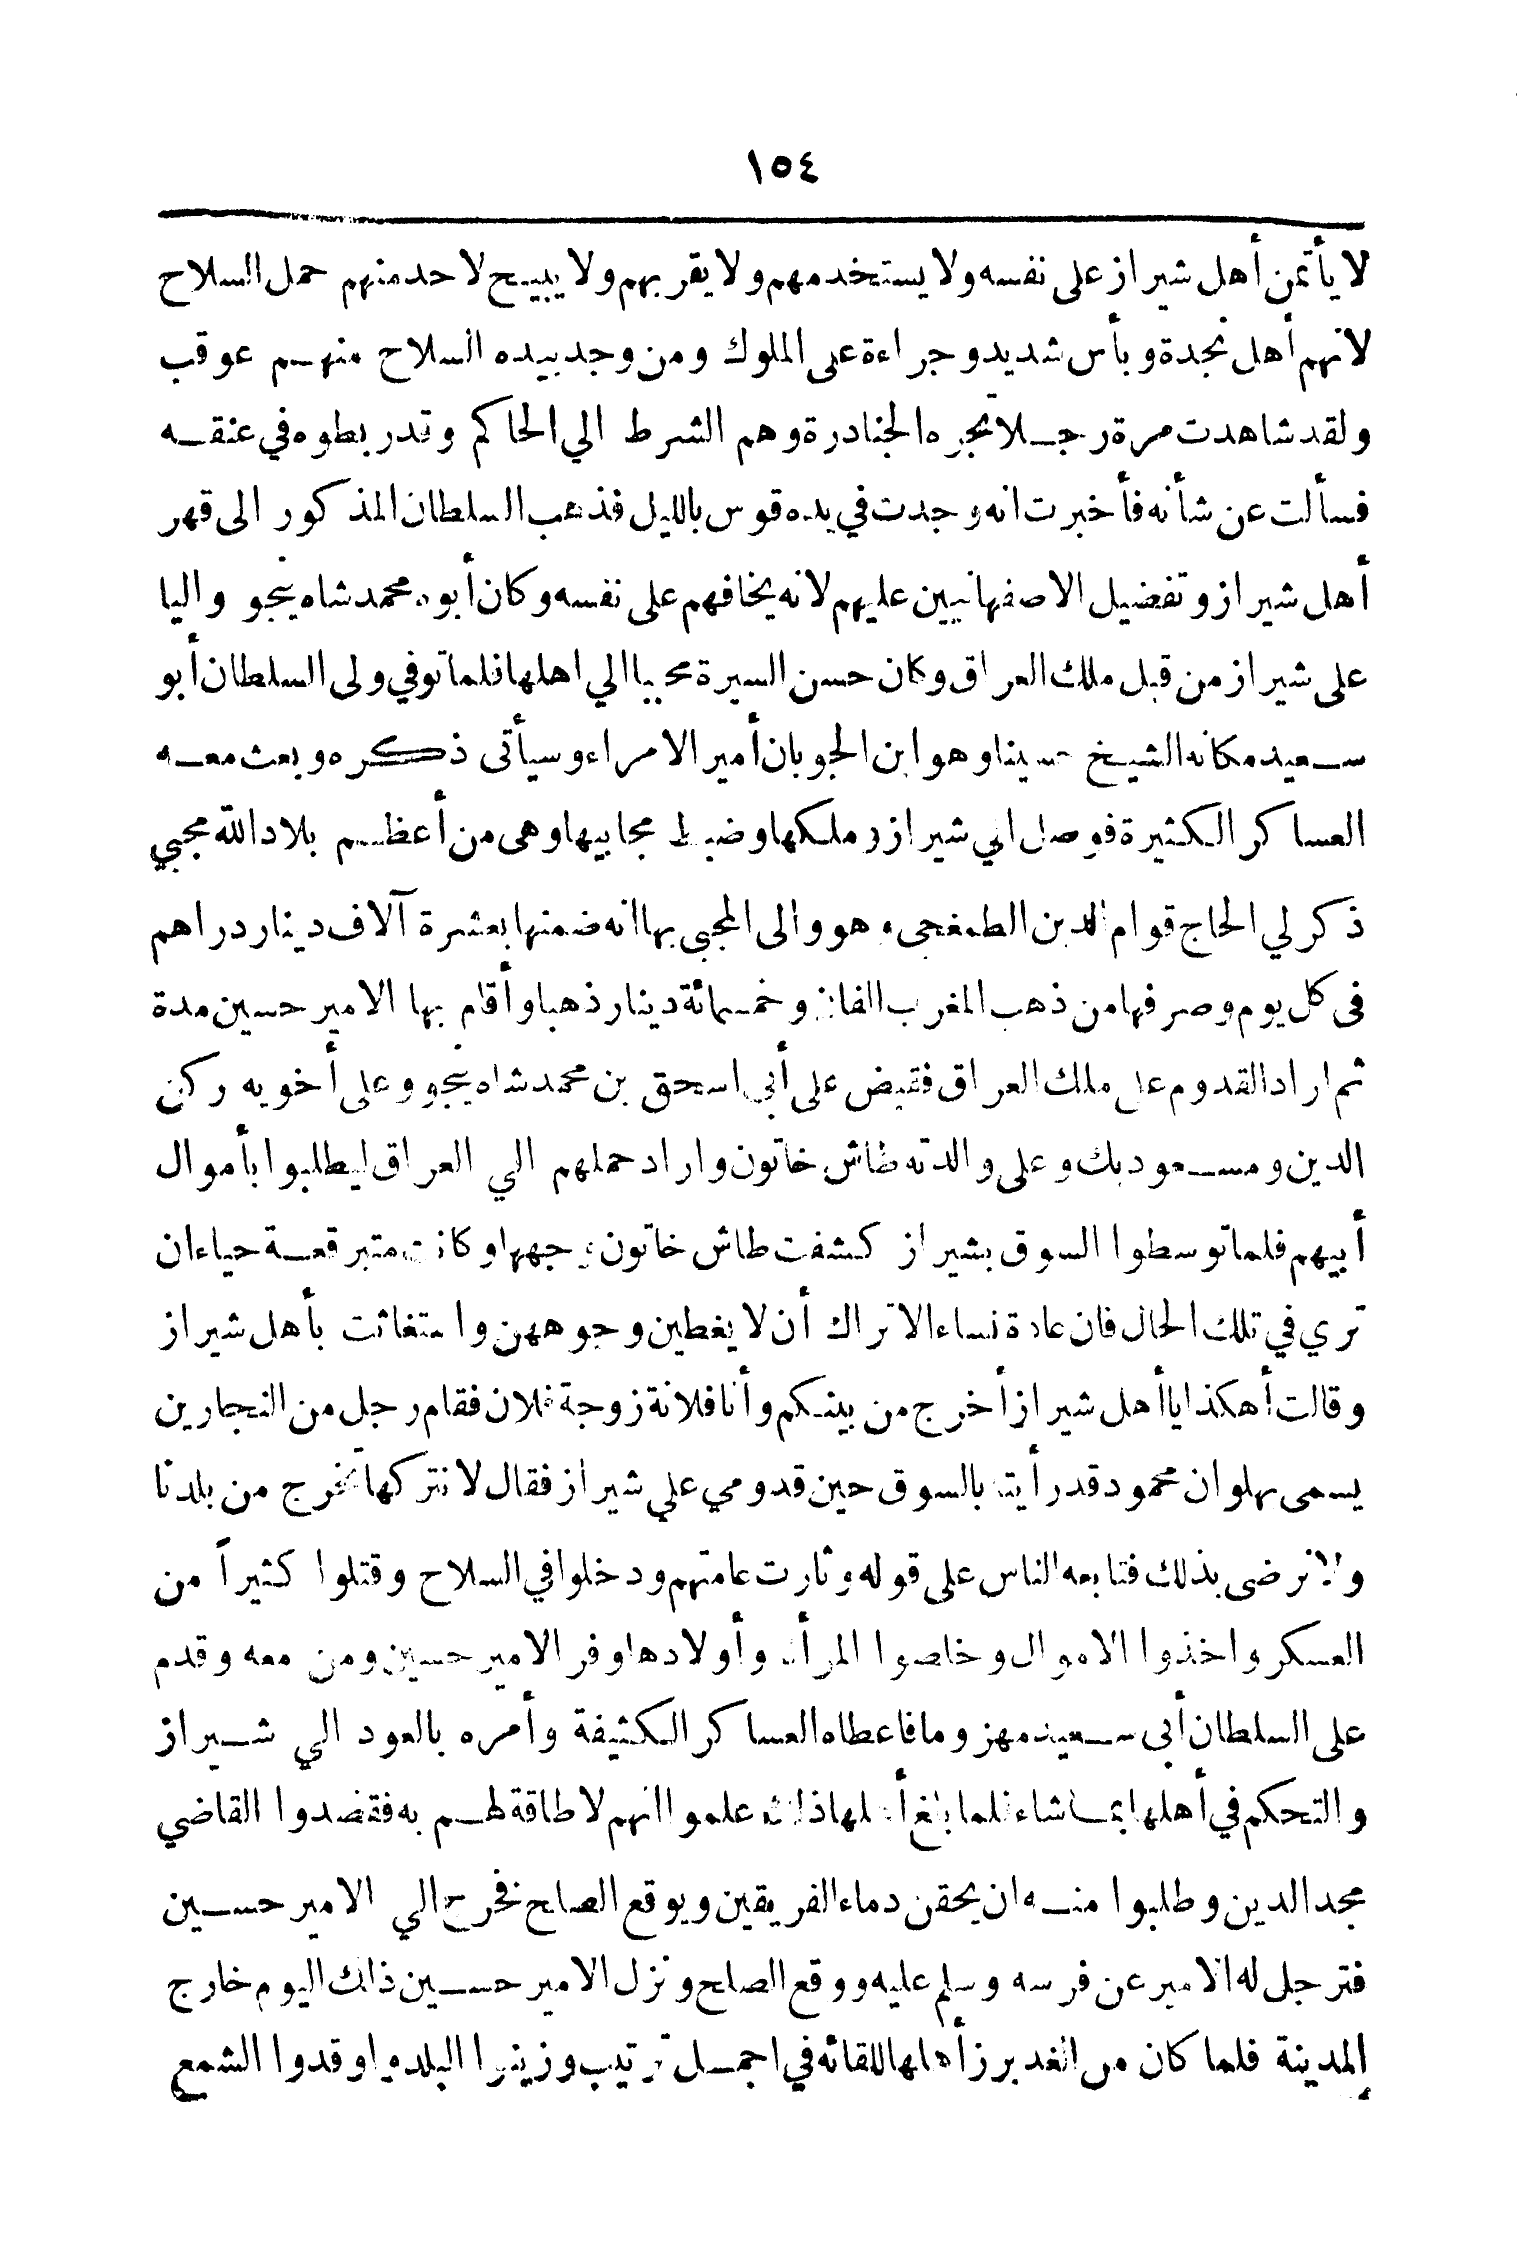 ١٥٤
لا يأتمن أهل شيراز على نفسه ولا يستخدمهم ولا يقربهم ولا يبيح لاحد منهم حمل السلاح
لانهم أهل نجدة وبأس شديد وجراءة على الملوك ومن وجد بيده السلاح منهم عوقب
ولقد شاهدت مرة رجلا تجره الجنادرة وهم الشرط الي الحاكم وقد ربطوه في عنقه
فسألت عن شأنه فأخبرت انه وجدت في يده قوس بالليل فذهب السلطان المذكور الى قهر
أهل شيراز وتفضيل الاصفهانيين عليهم لانه يخافهم على نفسه وكان أبوه محمد شاه ينجو واليا
على شيراز من قبل ملك العراق وكان حسن السيرة محببا الي اهلها فلما توفي ولى السلطان أبو
سعيد مكانه الشيخ حسينا وهو ابن الجوبان أمير الامراء وسيأتى ذكره وبعث معه
العساكر الكثيرة فوصل الي شيراز وملكها وضبط مجابيها وهى من أعظم بلاد الله مجبي
ذكر لي الحاج قوام الدين الطمغجى وهو والى المجبى بها انه ضمنها بعشرة آلاف دينار دراهم
فى كل يوم وصرفها من ذهب المغرب الفان وخمسمائة دينار ذهبا وأقام بها الامير حسين مدة
ثم اراد القدوم على ملك العراق فقبض على أبي اسحق بن محمد شاه ينجو وعلى أخويه ركن
الدين ومسعود بك وعلى والدته طاش خاتون واراد حملهم الي العراق ليطلبوا بأموال
أبيهم فلما توسطوا السوق بشيراز كشفت طاش خاتون وجهها وكانت متبرقعة حياء ان
تري في تلك الحال فان عادة نساء الاتراك أن لا يغطين وجوههن واستغاثت بأهل شيراز
وقالت أهكذا يا أهل شيراز أخرج من بينكم وأنا فلانة زوجة فلان فقام رجل من النجارين
يسمى بهلوان محمود قد رأيته بالسوق حين قدومي علي شيراز فقال لا نتركها تخرج من بلدنا
ولا نرضى بذلك فتابعه الناس على قوله وثارت عامتهم ودخلوا في السلاح وقتلوا كثيراً من
العسكر واخذوا الاموال وخلصوا المرأة وأولادها وفر الامير حسين ومن معه وقدم
على السلطان أبى سعيد مهزوما فاعطاه العساكر الكثيفة وأمره بالعود الي شيراز
والتحكم في أهلها بما شاء فلما بلغ أهلها ذلك علموا انهم لا طاقة لهم به فقصدوا القاضي
مجد الدين وطلبوا منه ان يحقن دماء الفريقين ويوقع الصلح فخرج الي الامير حسين
فترجل له الامير عن فرسه وسلم عليه ووقع الصلح ونزل الامير حسين ذلك اليوم خارج
المدينة فلما كان من الغد برز أهلها للقائه في اجمل ترتيب وزينوا البلد واوقدوا الشمع